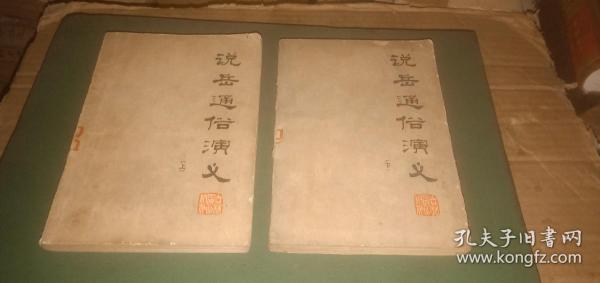 说岳通俗演义
(上)
说岳通俗演义
(下)
孔夫子旧书网
www.kongfz.com